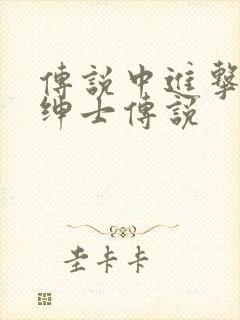 傳說中進擊
紳士傳說
圭卡卡